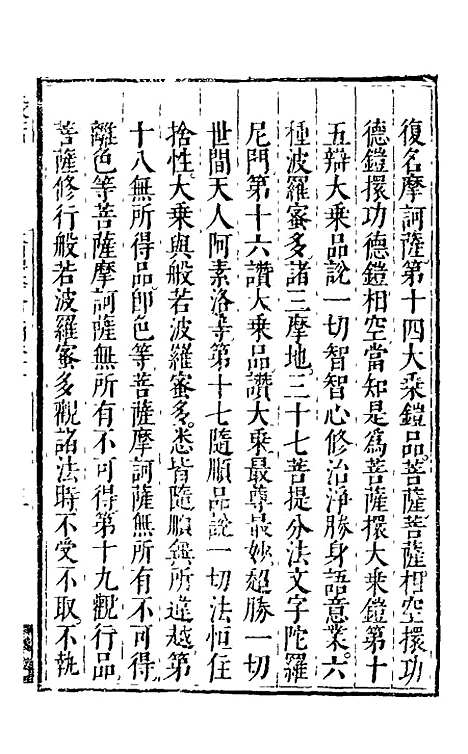 復名摩訶薩第十四大乘鎧品菩薩菩薩相空擐功
德鎧擐功德鎧相空當知是為菩薩擐大乘鎧第十
五辯大乘品說一切智智心修治淨勝身語意業六
種波羅蜜多諸三摩地三十七菩提分法文字陀羅
尼門第十六讚大乘品讚大乘最尊最妙超勝一切
世間天人阿素洛等第十七隨順品說一切法恒住
捨性大乘與般若波羅蜜多悉皆隨順無所違越第
十八無所得品即色等菩薩摩訶薩無所有不可得
離色等菩薩摩訶薩無所有不可得第十九觀行品
菩薩修行般若波羅蜜多觀諸法時不受不取不執